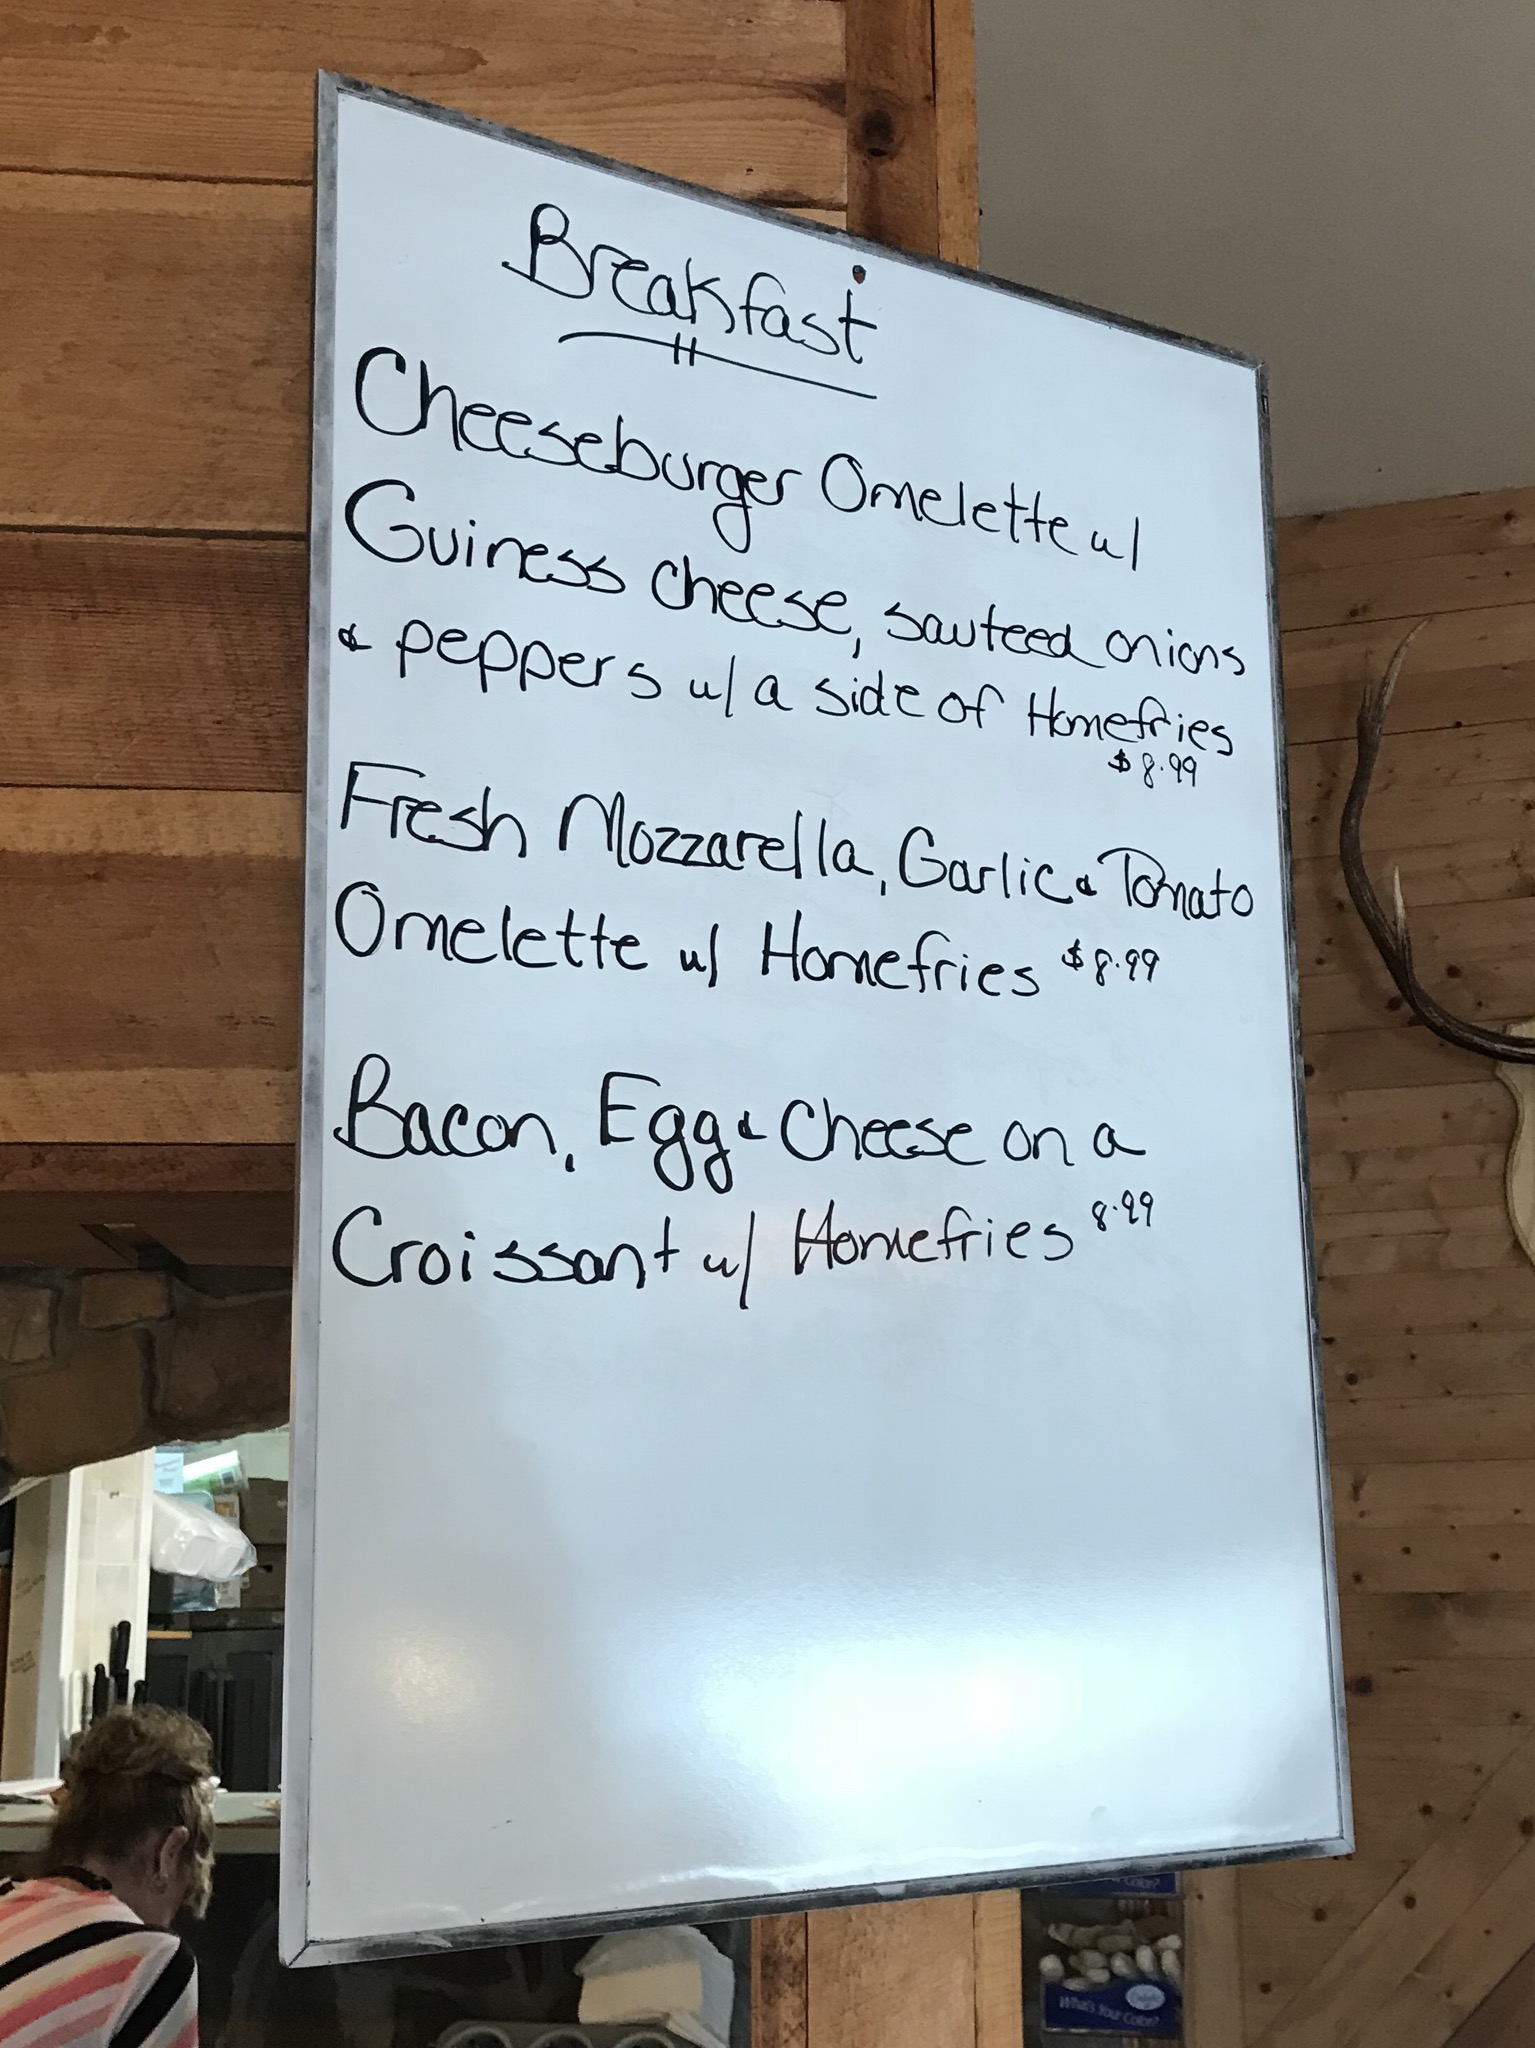 Breakfast
Cheeseburger Omelette w/
Guiness cheese, sauteed onions
& peppers w/ a side of Homefries
$8.99
Fresh Mozzarella, Garlic & Tomato
Omelette w/ Homefries $8.99
Bacon, Egg & Cheese on a
Croissant w/ Homefries 8.99
Color?
What's Your Color?